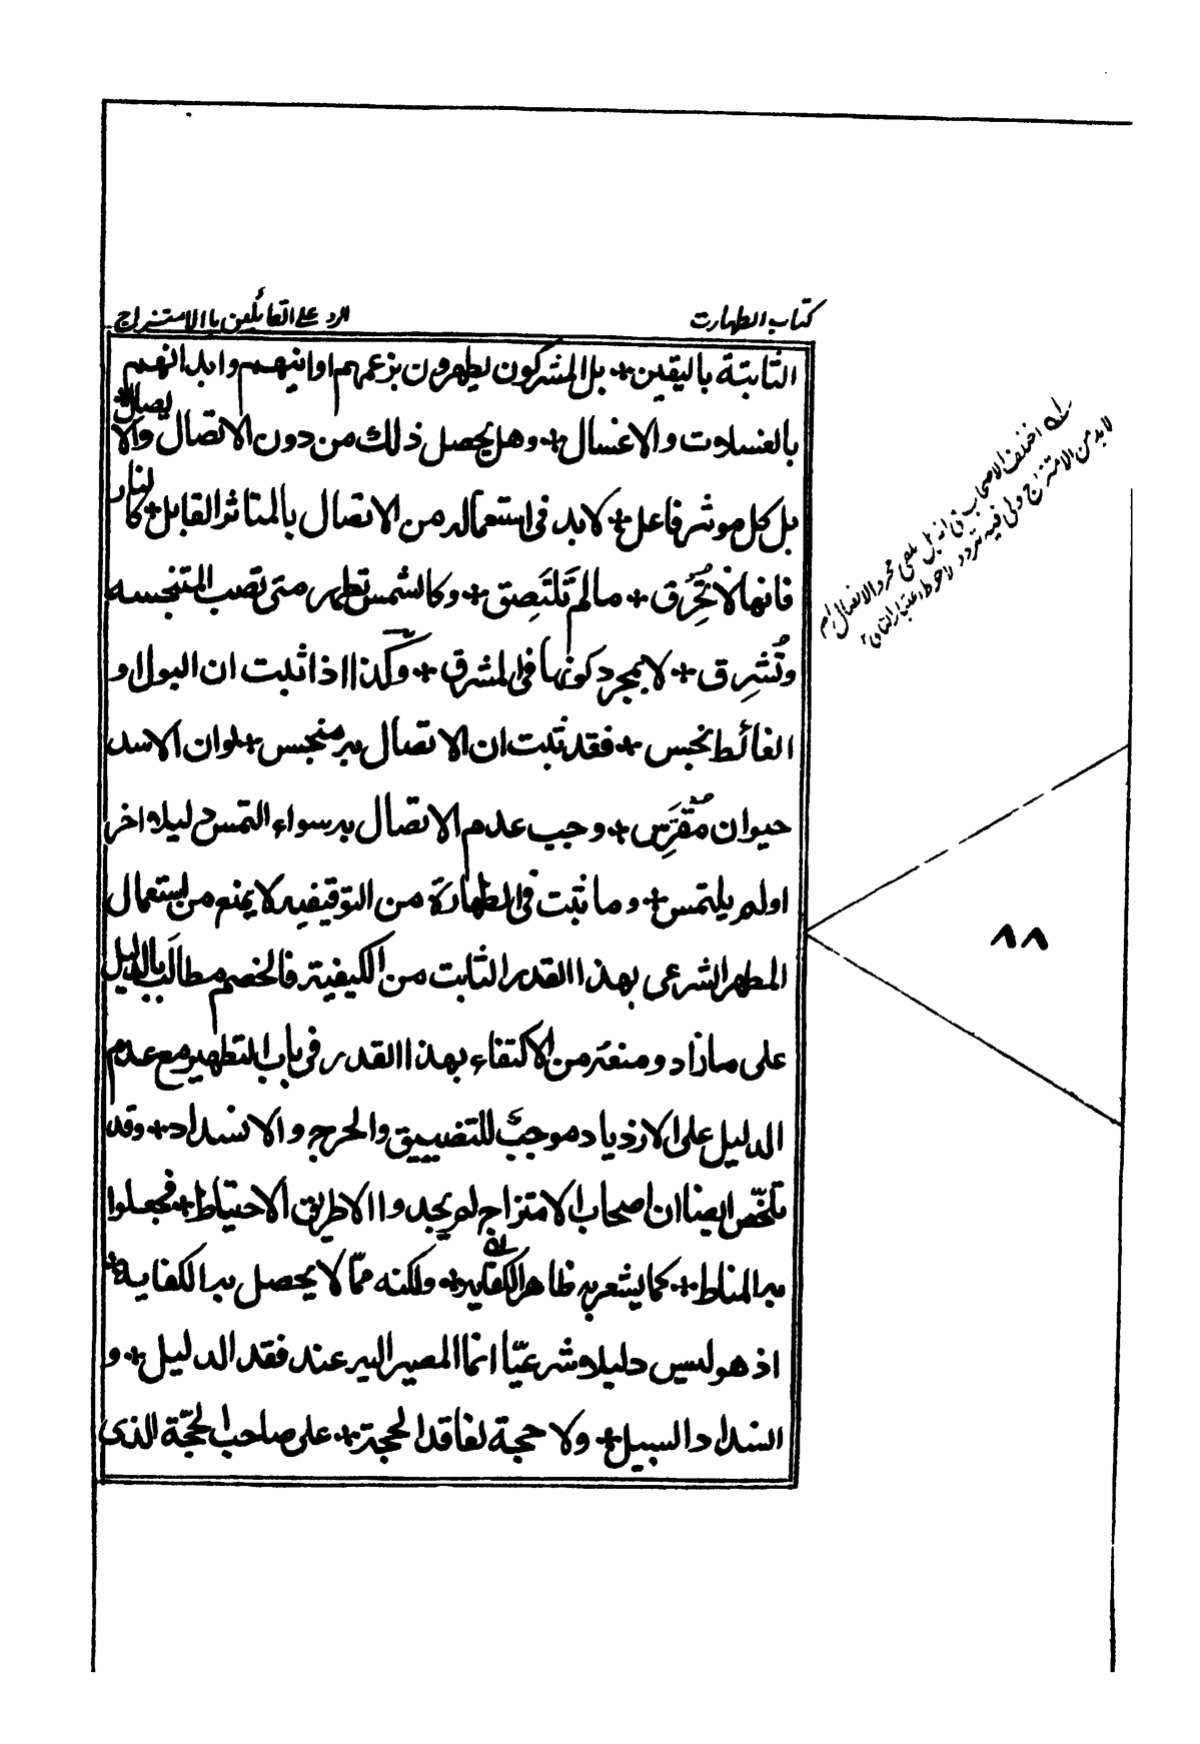 كتاب الطهارت
الرد على القائلين بالامتزاج
الثابتة باليقين + بل المشركون يطهرون بزعمهم اوانيهم وابدانهم
بالغسلات والاغسال + وهل يحصل ذلك من دون الاتصال والايصال +
بل كل موثر فاعل + لابد فى استعماله من الاتصال بالمتاثر القابل + كالنار
فانها لا تُحْرِق + مالم تَلتَصِق + وكالشمس تطهر متى تصب المتنجسه
وتُشرِق + لا بمجرد كونها فى المشرق + وكذا اذا ثبت ان البول او
الغائط نجس + فقد ثبت ان الاتصال به منجس + لوان الاسد
حيوان مُفْتَرِس + وجب عدم الاتصال به سواء التمس دليلا اخر
اولم يلتمس + وما ثبت فى الطهارة من التوقيفيه لا يمنع من استعمال
المطهر الشرعى بهذا القدر الثابت من الكيفية فالخصم مطالَب بالدليل
على مازاد ومنعه من الاكتفاء بهذا القدر فى باب التطهير مع عدم
الدليل على الازدياد موجب للتضييق والحرج والانسداد + وقد
تلخّص ايضا ان اصحاب الامتزاج لم يجدوا الا طريق الاحتياط + فجعلوا
به المناط + كما يشعر به ظاهر الكفايه + ولكنه ممّا لا يحصل به الكفايه +
اذ هو ليس دليلا شرعيّا انما المصير اليه عند فقد الدليل + و
انسداد السبيل + ولا حجة لفاقد الحجة + على صاحب الحجّة الذى
له اختلف الاصحاب فى انه هل يكفى مجرد الاتصال ام
لابد من الامتزاج ولى فيه تردد والاحوط اعتبار الثانى
٨٨